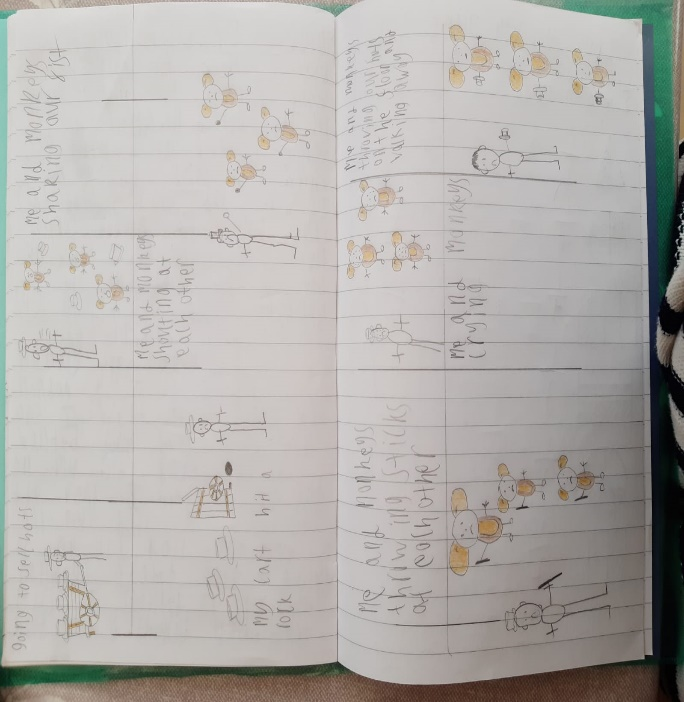 going to sell hats
my cart hit a
rock
me and monkey
shouting at
each other
me and monkeys
shaking our fist
me and monkeys
throwing sticks
at eachother
me and monkeys
crying
me and monkeys
throwing our hats
on the floor and
walking away